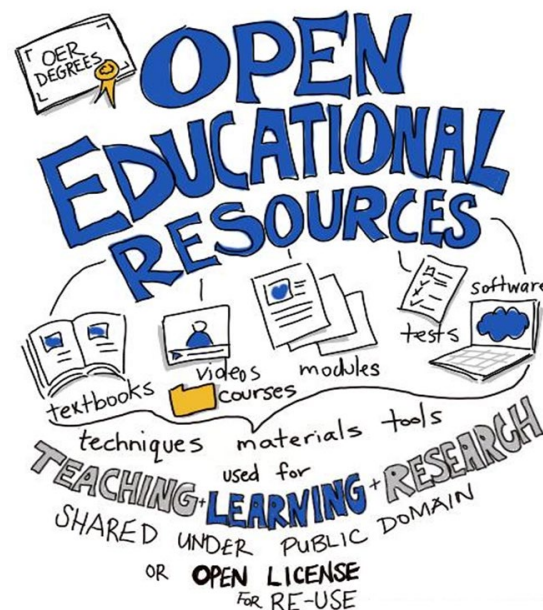 OER
DEGREES
OPEN
EDUCATIONAL
RESOURCES
textbooks
videos
courses
modules
tests
software
techniques materials tools
used for
TEACHING + LEARNING + RESEARCH
SHARED UNDER PUBLIC DOMAIN
OR OPEN LICENSE
FOR RE-USE